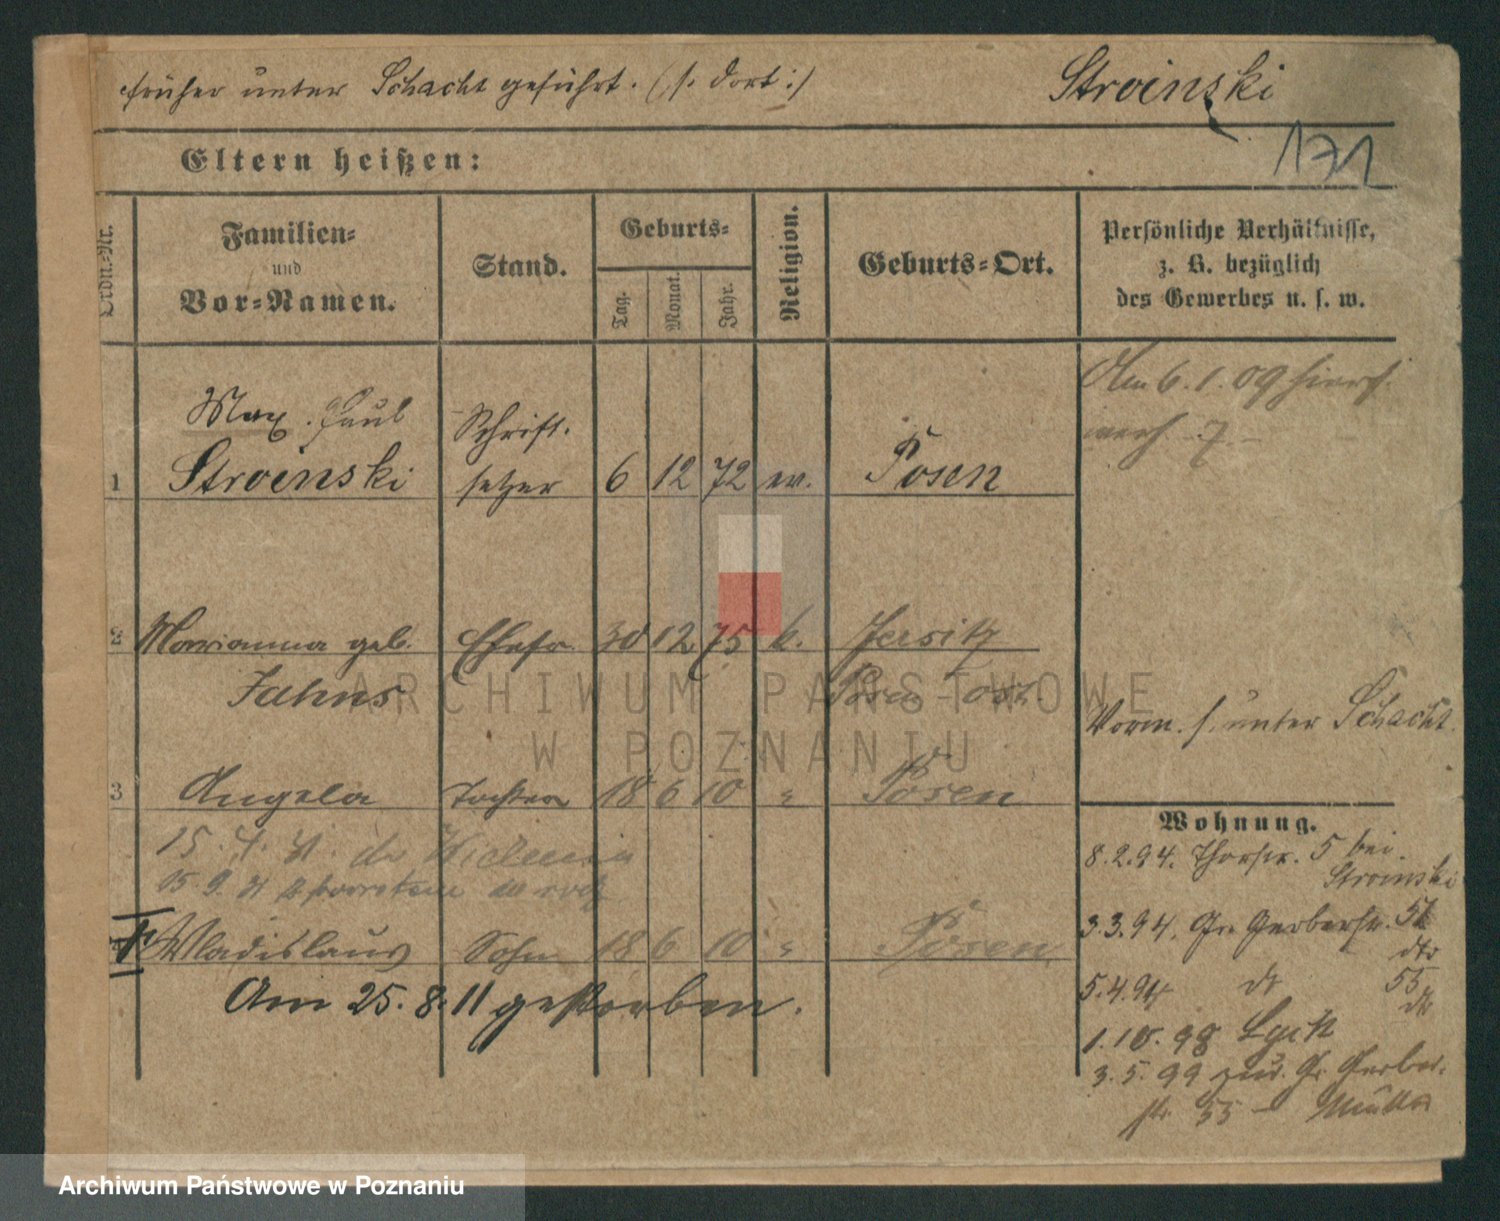 früher unter Schacht geführt. (s. dort:)
Stroinski
171
Eltern heißen:
Ordn.-Nr.
Familien-
und
Vor-Namen.
Stand.
Geburts-
Tag.
Monat.
Jahr.
Religion.
Geburts-Ort.
Persönliche Verhältnisse,
z. B. bezüglich
des Gewerbes u. s. w.
Am 6. 1. 09
Max Paul Schrift-
1 Stroinski setzer 6 12 72 ev. Posen
2 Marianna geb. Ehefr. 30 12 75 k. Jersitz
Jahns Posen Ost
Vorm. s. unter Schacht
3 Angela Tochter 18 6 10 " Posen
15.
15. 9.
Wladislaus Sohn 18 6 10 " Posen
Am 25. 8. 11 gestorben.
Wohnung.
8. 2. 94. Thorstr. 5 bei
Stroinski
3. 3. 94. Gr. Gerberstr. 51
dto
5. 4. 94 dt 55
dt
1. 10. 98 Lyck
3. 5. 99 zur. Gr. Gerber-
str. 55 – Mutter
ARCHIWUM PAŃSTWOWE
W POZNANIU
Archiwum Państwowe w Poznaniu